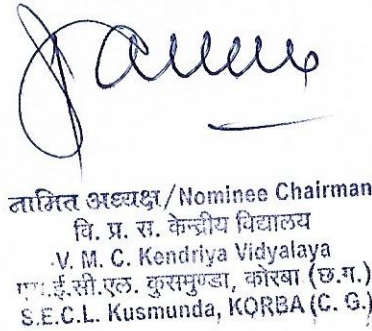 नामित अध्यक्ष/Nominee Chairman
वि. प्र. स. केन्द्रीय विद्यालय
V. M. C. Kendriya Vidyalaya
एस.ई.सी.एल. कुसमुण्डा, कोरबा (छ.ग.)
S.E.C.L. Kusmunda, KORBA (C. G.)